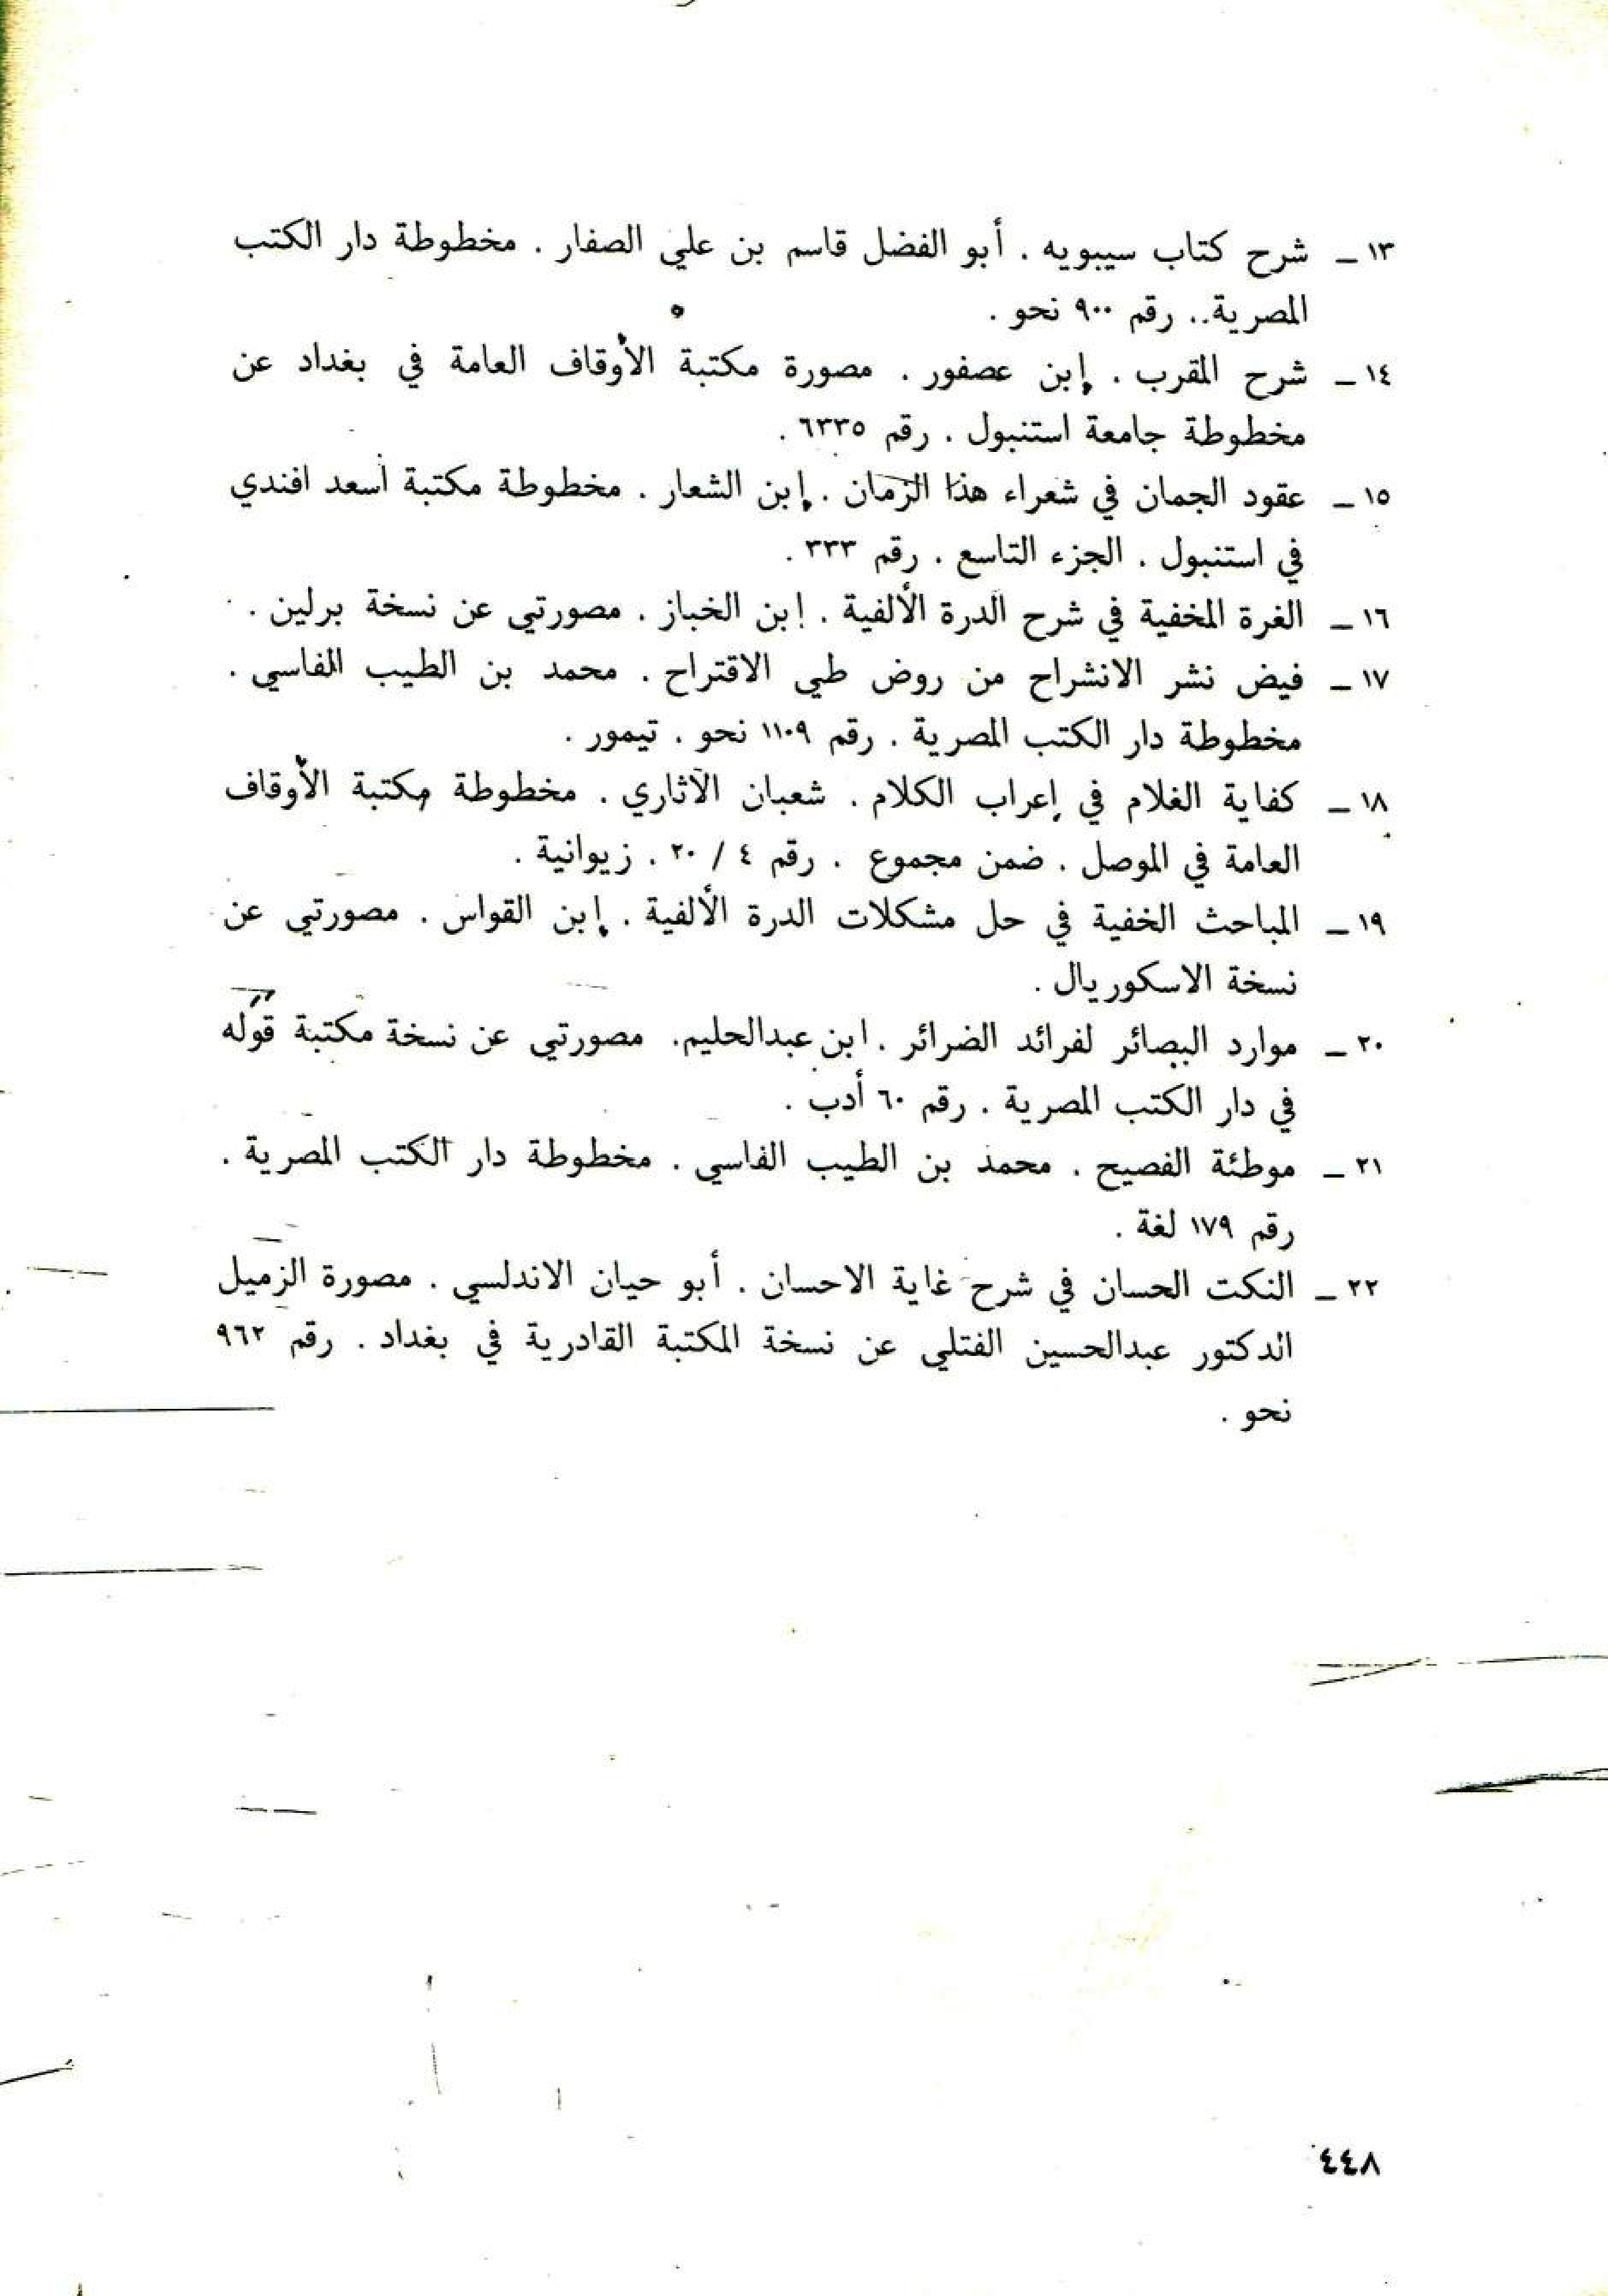 ١٣ – شرح كتاب سيبويه . أبو الفضل قاسم بن علي الصفار . مخطوطة دار الكتب
المصرية.. رقم ٩٠٠ نحو .
١٤ – شرح المقرب . إبن عصفور . مصورة مكتبة الأوقاف العامة في بغداد عن
مخطوطة جامعة استنبول . رقم ٦٣٣٥ .
١٥ – عقود الجمان في شعراء هذا الزمان . إبن الشعار . مخطوطة مكتبة أسعد افندي
في استنبول . الجزء التاسع . رقم ٣٣٣ .
١٦ – الغرة المخفية في شرح الدرة الألفية . إبن الخباز . مصورتي عن نسخة برلين .
١٧ – فيض نشر الانشراح من روض طي الاقتراح . محمد بن الطيب الفاسي .
مخطوطة دار الكتب المصرية . رقم ١١٠٩ نحو . تيمور .
١٨ – كفاية الغلام في إعراب الكلام . شعبان الآثاري . مخطوطة مكتبة الأوقاف
العامة في الموصل . ضمن مجموع . رقم ٤ / ٢٠ . زيوانية .
١٩ – المباحث الخفية في حل مشكلات الدرة الألفية . إبن القواس . مصورتي عن
نسخة الاسكوريال .
٢٠ – موارد البصائر لفرائد الضرائر . ابن عبدالحليم. مصورتي عن نسخة مكتبة قوله
في دار الكتب المصرية . رقم ٦٠ أدب .
٢١ – موطئة الفصيح . محمد بن الطيب الفاسي . مخطوطة دار الكتب المصرية .
رقم ١٧٩ لغة .
٢٢ – النكت الحسان في شرح غاية الاحسان . أبو حيان الاندلسي . مصورة الزميل
الدكتور عبدالحسين الفتلي عن نسخة المكتبة القادرية في بغداد . رقم ٩٦٢
نحو .
٤٤٨